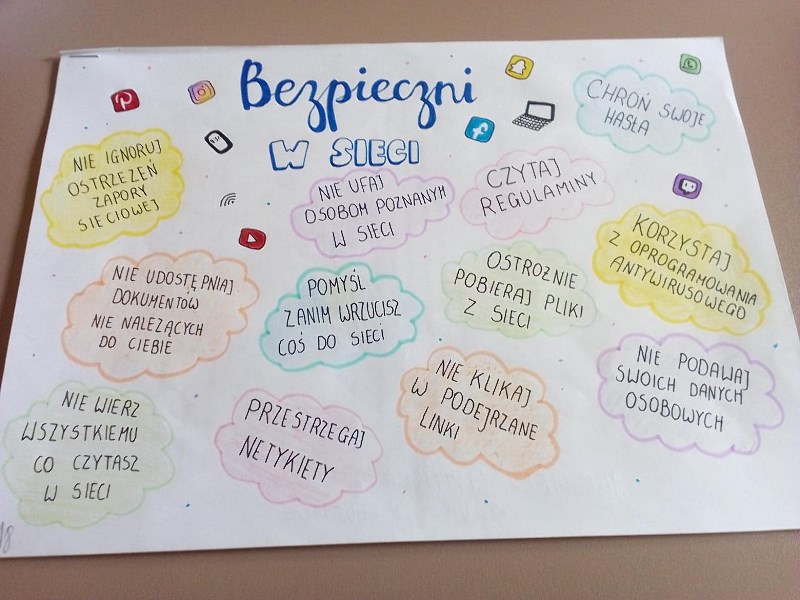 Bezpieczni
W SIECI
CHROŃ SWOJE
HASŁA
NIE IGNORUJ
OSTRZEŻEŃ
ZAPORY
SIECIOWEJ
NIE UFAJ
OSOBOM POZNANYM
W SIECI
CZYTAJ
REGULAMINY
KORZYSTAJ
Z OPROGRAMOWANIA
ANTYWIRUSOWEGO
NIE UDOSTĘPNIAJ
DOKUMENTÓW
NIE NALEŻĄCYCH
DO CIEBIE
POMYŚL
ZANIM WRZUCISZ
COŚ DO SIECI
OSTROŻNIE
POBIERAJ PLIKI
Z SIECI
NIE PODAWAJ
SWOICH DANYCH
OSOBOWYCH
NIE WIERZ
WSZYSTKIEMU
CO CZYTASZ
W SIECI
PRZESTRZEGAJ
NETYKIETY
NIE KLIKAJ
W PODEJRZANE
LINKI